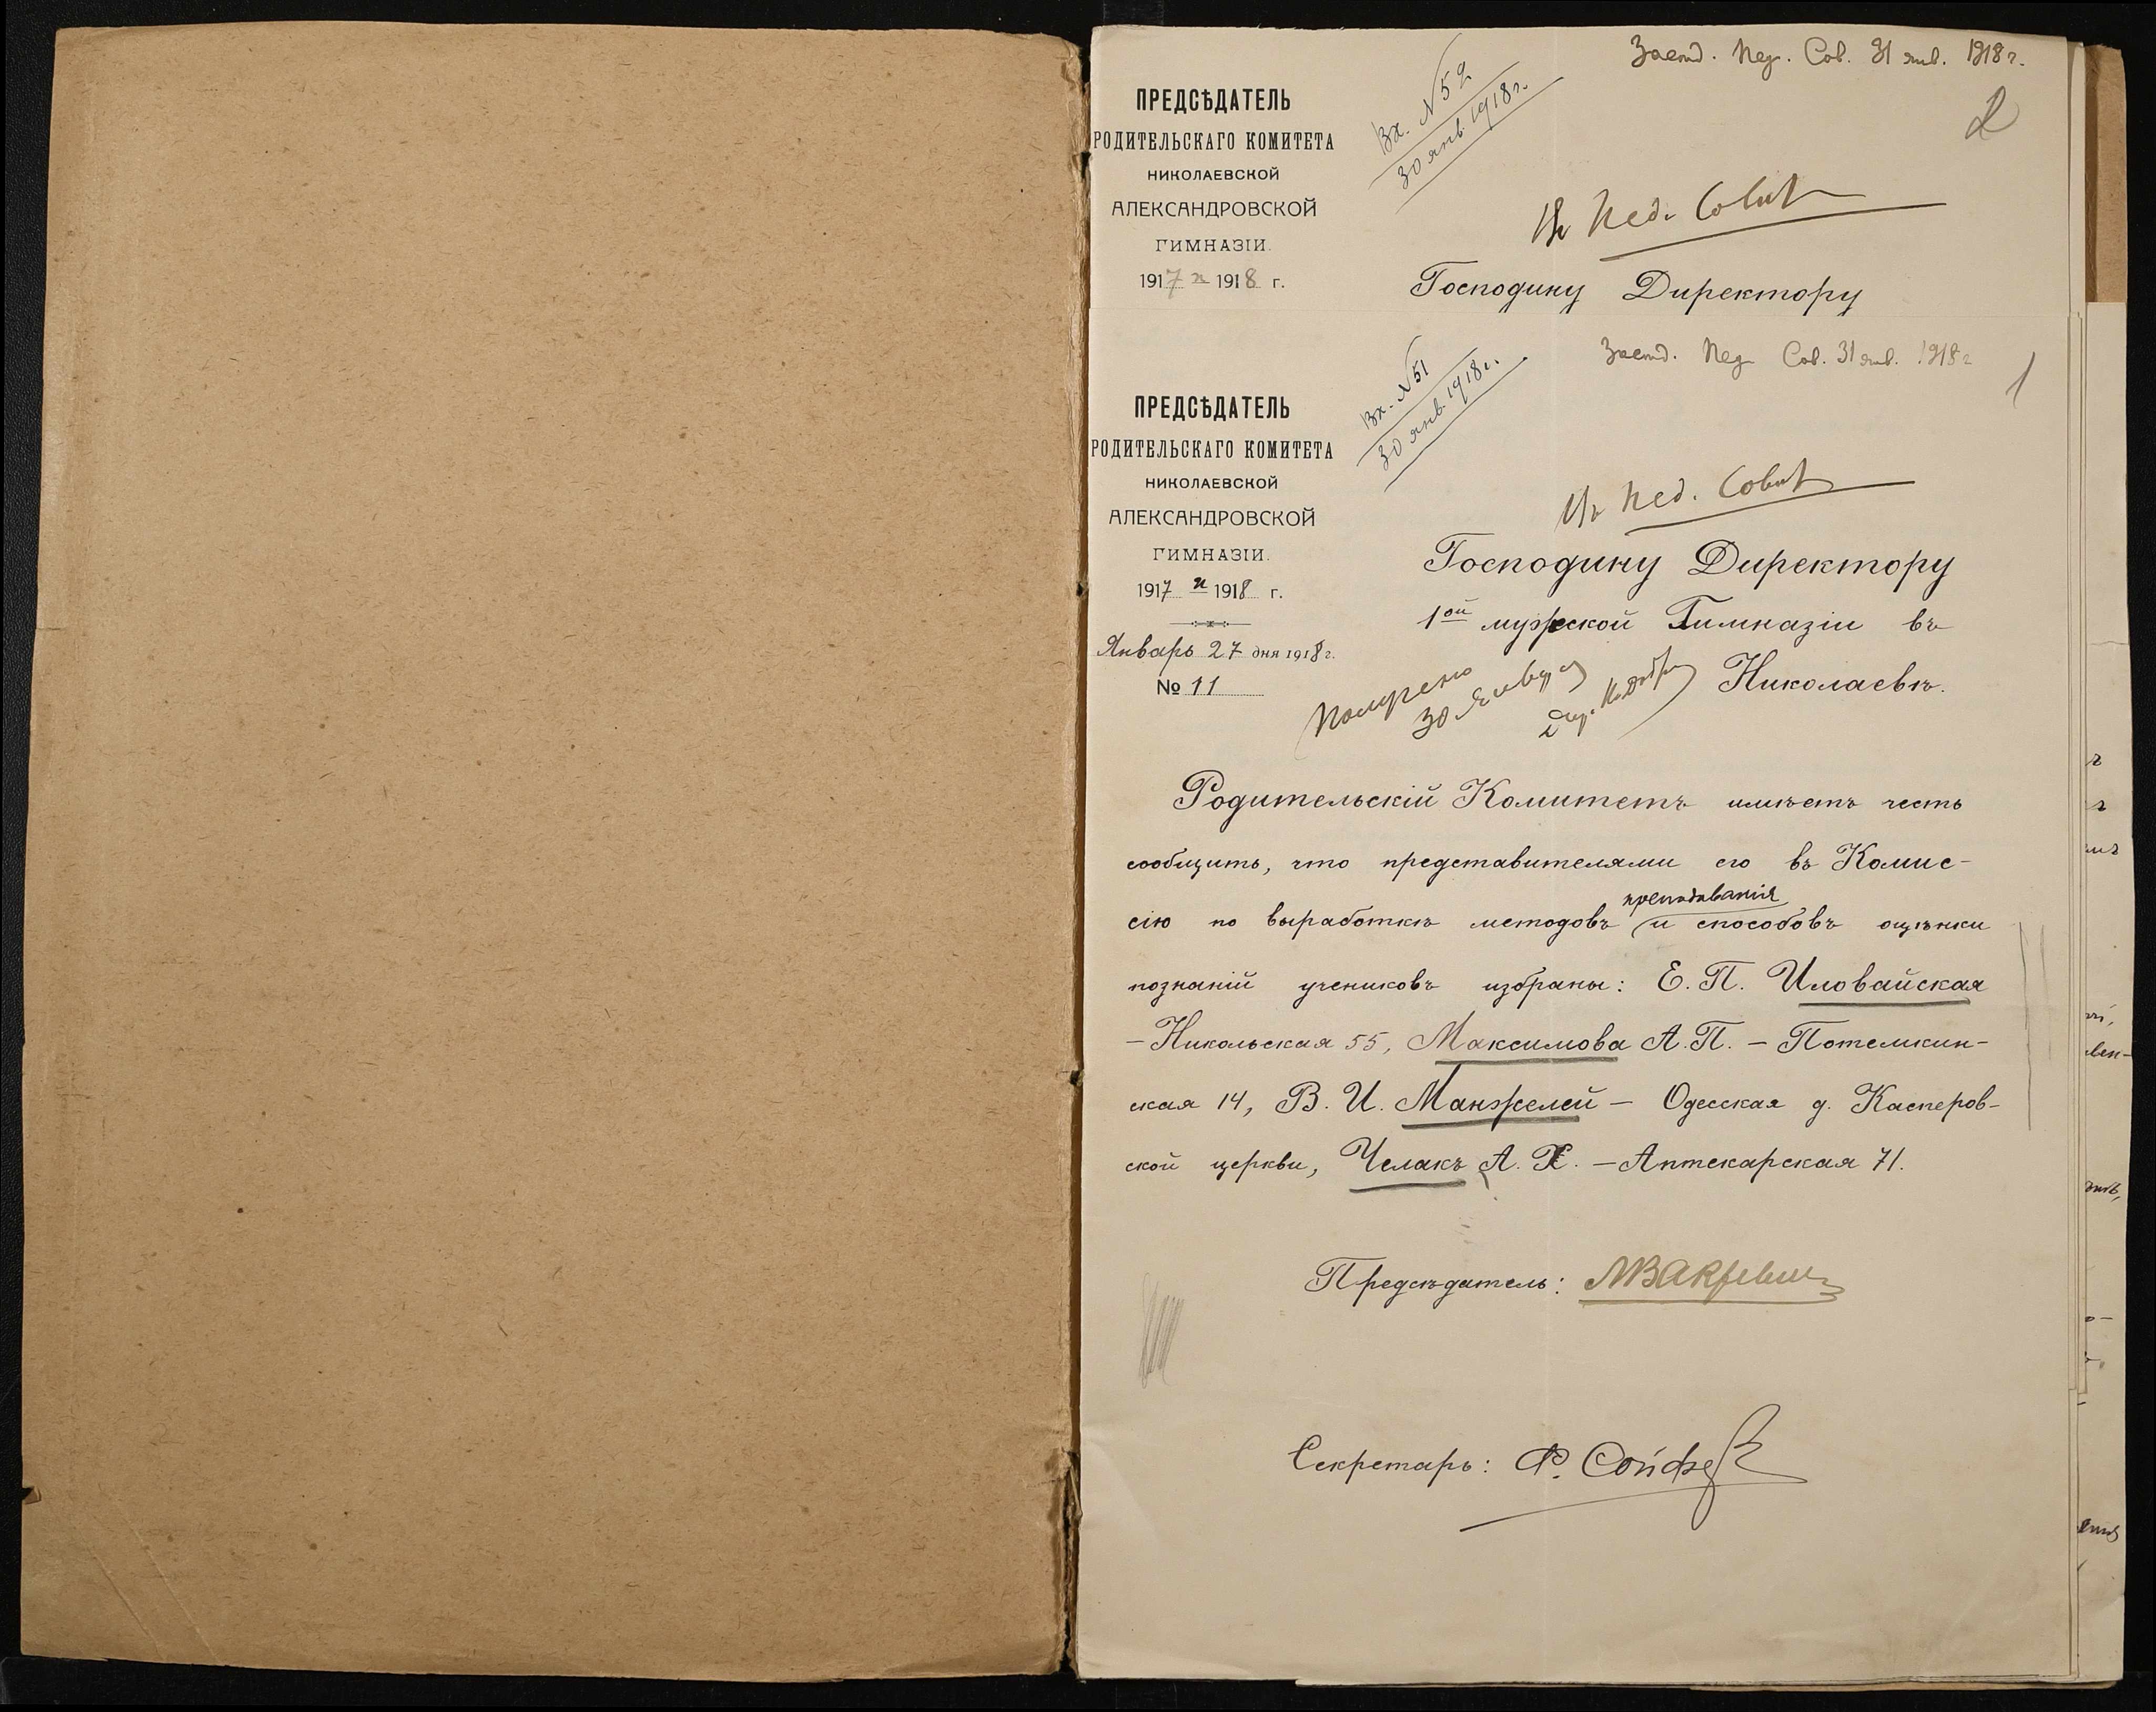 Засѣд. Пед. Сов. 31 янв. 1918 г.
2
Вх. №52
30 янв. 1918 г.
ПРЕДСѢДАТЕЛЬ
РОДИТЕЛЬСКАГО КОМИТЕТА
НИКОЛАЕВСКОЙ
АЛЕКСАНДРОВСКОЙ
ГИМНАЗІИ.
1917 и 1918 г.
Въ Пед. Совѣтъ
Господину Директору
Засѣд. Пед. Сов. 31 янв. 1918 г
1
Вх. №51
30 янв. 1918 г.
ПРЕДСѢДАТЕЛЬ
РОДИТЕЛЬСКАГО КОМИТЕТА
НИКОЛАЕВСКОЙ
АЛЕКСАНДРОВСКОЙ
ГИМНАЗІИ.
1917 и 1918 г.
Январь 27 дня 1918 г.
№ 11
Въ Пед. Совѣтъ
Господину Директору
1ой мужской Гимназіи въ
Николаевѣ.
Получено
30 Января
Дир.
Родительскій Комитетъ имѣетъ честь
сообщить, что представителями его въ Комис-
сію по выработкѣ методовъ преподаванія и способовъ оцѣнки
познаній учениковъ избраны: Е. П. Иловайская
– Никольская 55, Максимова А. П. – Потемкин-
ская 14, В. И. Манжелей – Одесская д. Касперов-
ской церкви, Челакъ А. Х. – Аптекарская 71.
Предсѣдатель:
Секретарь: Ф.